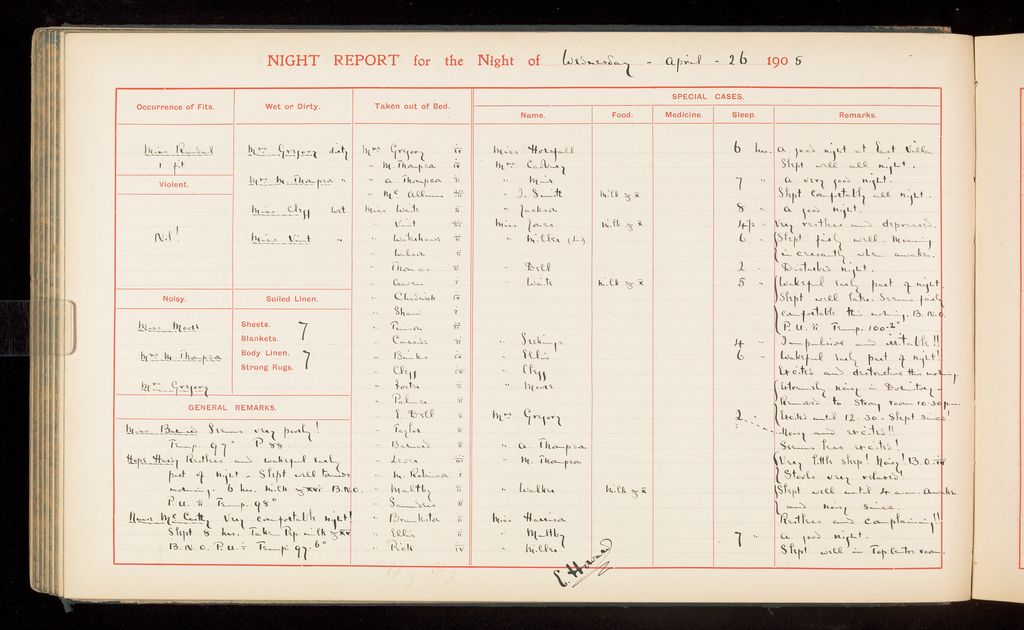 NIGHT REPORT for the Night of Wednesday - April - 26 1905
Occurrence of Fits.
Miss Randal
1 fit
Violent.
Nil!
Noisy.
Miss Moors
Mrs M. Thompson
Mrs Gregory
Wet or Dirty.
Mrs Gregory dirty
Mrs M. Thompson "
Miss Clegg wet
Miss Vint "
Soiled Linen.
Sheets. 7
Blankets.
Body Linen. 7
Strong Rugs.
GENERAL REMARKS.
Miss Barnard Seems very poorly!
Temp. 97° P 88.
Restless and wakeful early
part of night - Slept well towards
morning. 6 hrs. Milk B.N.O.
P.U. ii Temp. 98°
Very comfortable night!
Slept 8 hrs. Taken Pep. milk
B.N.O. P.U. ii Temp. 97.6°
Taken out of Bed.
Mrs Gregory iv
" M. Thompson iv
" A. Thompson
" Mc
Miss Waite ii
" Vint
" Waterhouse
" Wilson
" Thomas
"
" Chadwick
" Shaw
"
"
" Banks
" Clegg
" Foster
" Palmer
" E. Dell ii
" Taylor
" Barnard
"
" M. Robinson
" Maltby
" Saunders
"
" Ellis
" Pick iv
SPECIAL CASES.
Name. Food. Medicine. Sleep. Remarks.
Miss Horsfall 6 hrs. A good night at East Villa
Mrs Slept well all night.
" 7 " A very good night.
" J. Smith Milk Slept comfortably all night.
" Jackson 8 " A good night.
Miss Jones Milk 4½ " Very restless and depressed.
" Miller 6 " Slept fairly well. Moaning
incessantly when awake.
" Dell 2 " Disturbed night.
" Waite Milk 5 " Wakeful early part of night
Slept well later. Seems fairly
comfortable this morning. B.N.O.
P.U. ii Temp. 100.2°
" 4 " Impulsive and irritable!!
" Ellis 6 " Wakeful early part of night!
" Clegg Excited and destructive this morning.
" Moors Extremely noisy in Dormitory -
Removed to Strong room 10-30 p.m.
Mrs Gregory 2 " Excited until 12.30. Slept since!
Noisy and excited!!
" A. Thompson Seems less excited!
" M. Thompson Very little sleep! Noisy! B.O. iv
Stools very relaxed!
" Walker Milk Slept well until 4 a.m. Awake
and noisy since.
Miss Harrison Restless and complaining!!
" Maltby 7 " A good night.
" Miller Slept well in Top Centre room.
E. Howard